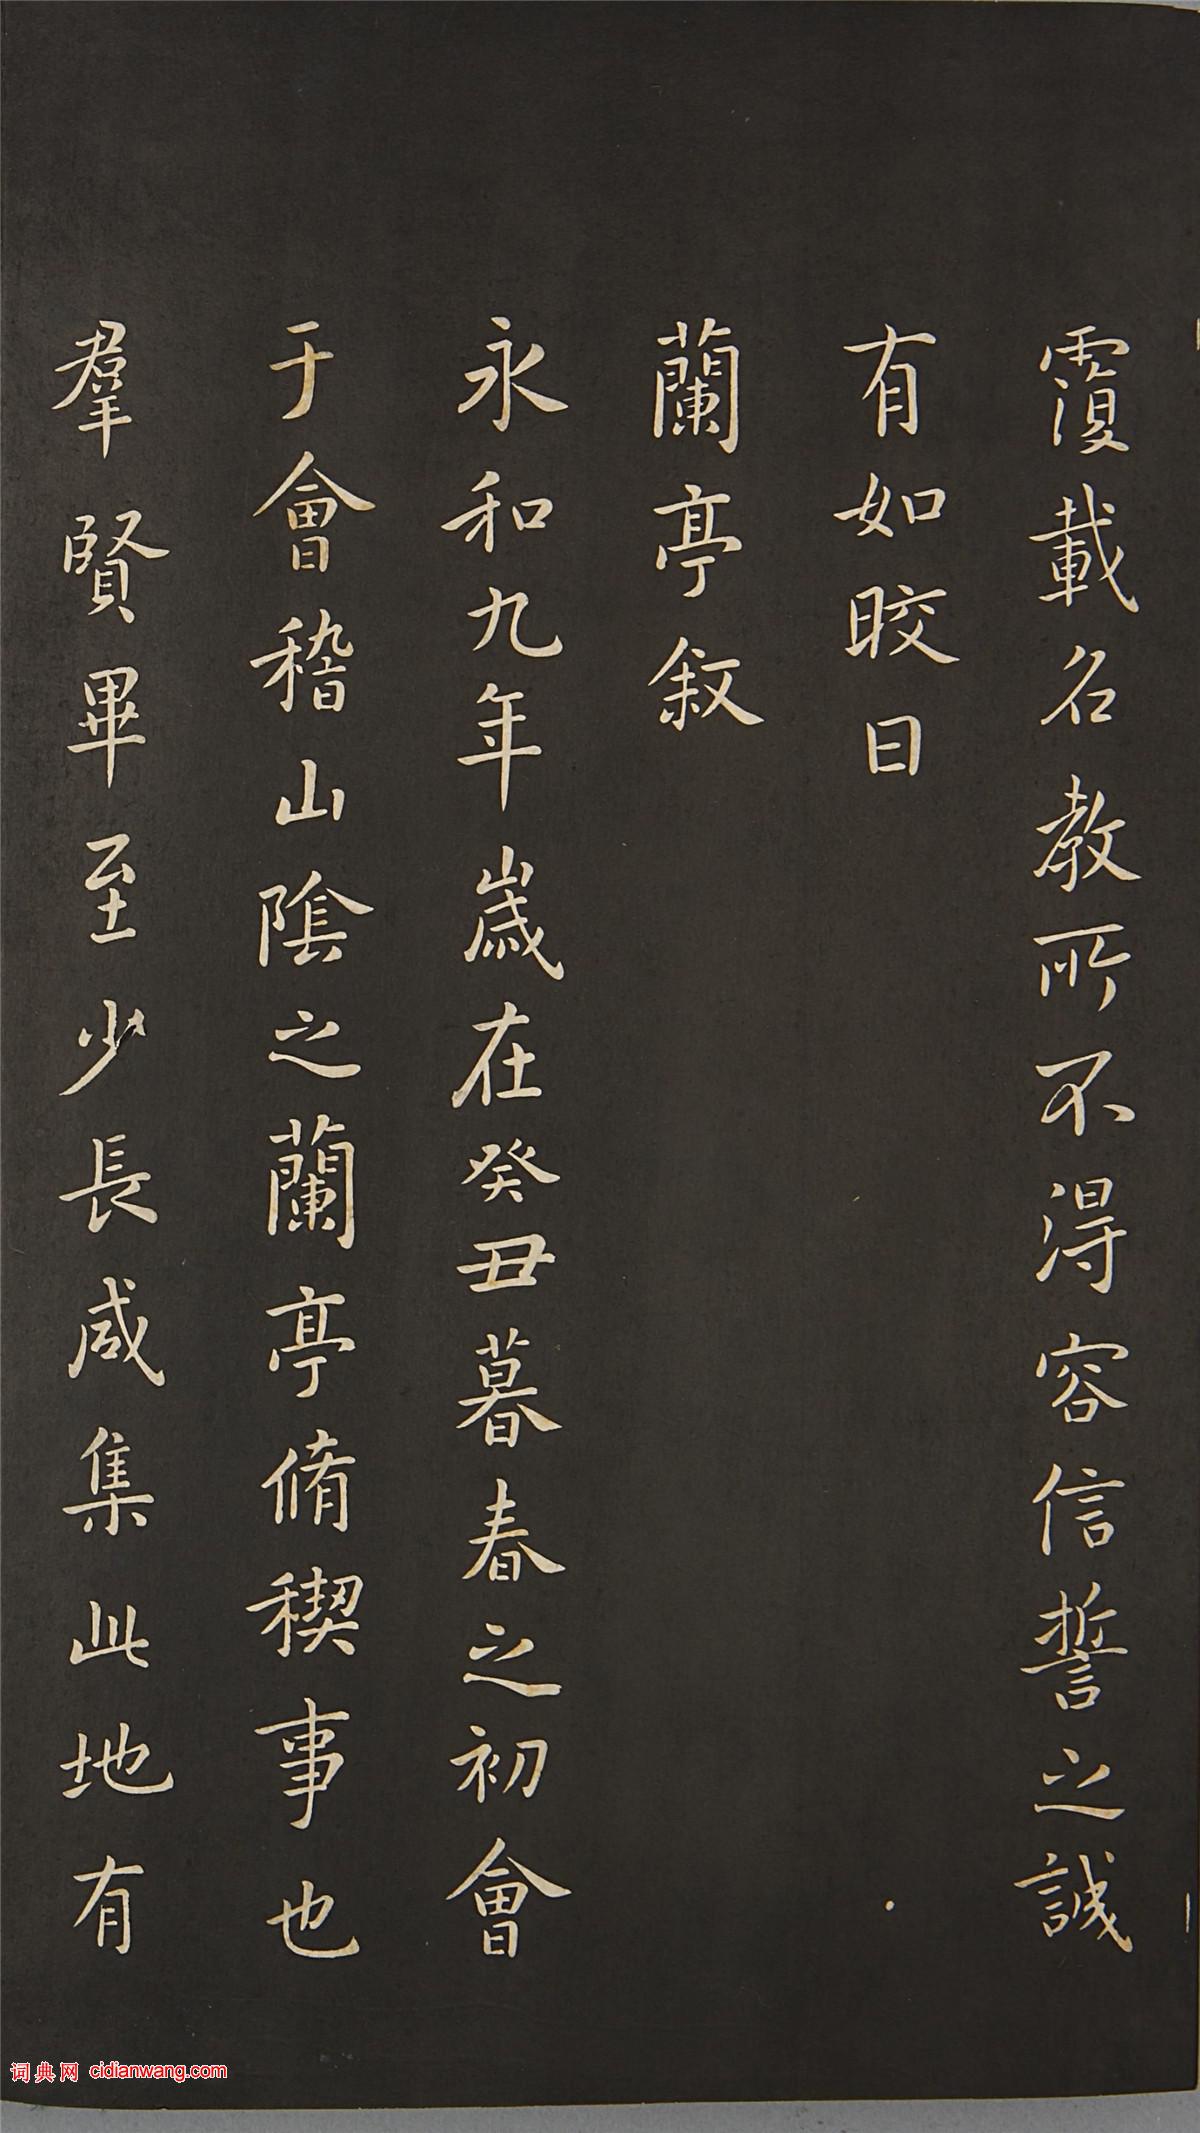 覆載名教所不得容信誓之誠
有如晈日
蘭亭叙
永和九年歲在癸丑暮春之初會
于會稽山陰之蘭亭脩稧事也
羣賢畢至少長咸集此地有
词典网 cidianwang.com